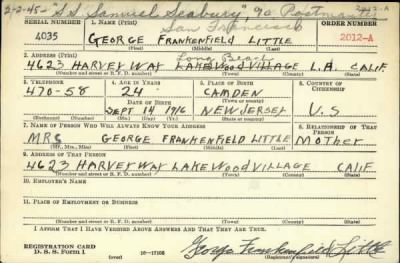 2-2-45- "SS Samuel Seabury", % Postmaster
San Francisco
SERIAL NUMBER 1. NAME (Print) ORDER NUMBER
4035 GEORGE FRANKENFIELD LITTLE 2012-A
(First) (Middle) (Last)
2. ADDRESS (Print)
Long Beach
4623 HARVEY WAY LAKEWOOD VILLAGE L.A. CALIF.
(Number and street or R. F. D. number) (Town) (County) (State)
3. TELEPHONE 4. AGE IN YEARS 5. PLACE OF BIRTH 6. COUNTRY OF CITIZENSHIP
470-58 24 CAMDEN
DATE OF BIRTH (Town or county)
SEPT 14 1916 NEW JERSEY U.S
(Exchange) (Number) (Mo.) (Day) (Yr.) (State or country)
7. NAME OF PERSON WHO WILL ALWAYS KNOW YOUR ADDRESS 8. RELATIONSHIP OF THAT PERSON
MRS GEORGE FRANKENFIELD LITTLE MOTHER
(Mr., Mrs., Miss) (First) (Middle) (Last)
9. ADDRESS OF THAT PERSON
4623 HARVEY WAY LAKEWOOD VILLAGE CALIF
(Number and street or R. F. D. number) (Town) (County) (State)
10. EMPLOYER'S NAME
11. PLACE OF EMPLOYMENT OR BUSINESS
(Number and street or R. F. D. number) (Town) (County) (State)
I AFFIRM THAT I HAVE VERIFIED ABOVE ANSWERS AND THAT THEY ARE TRUE.
REGISTRATION CARD
D. S. S. Form 1 16-17105 George Frankenfield Little
(Registrant's signature)